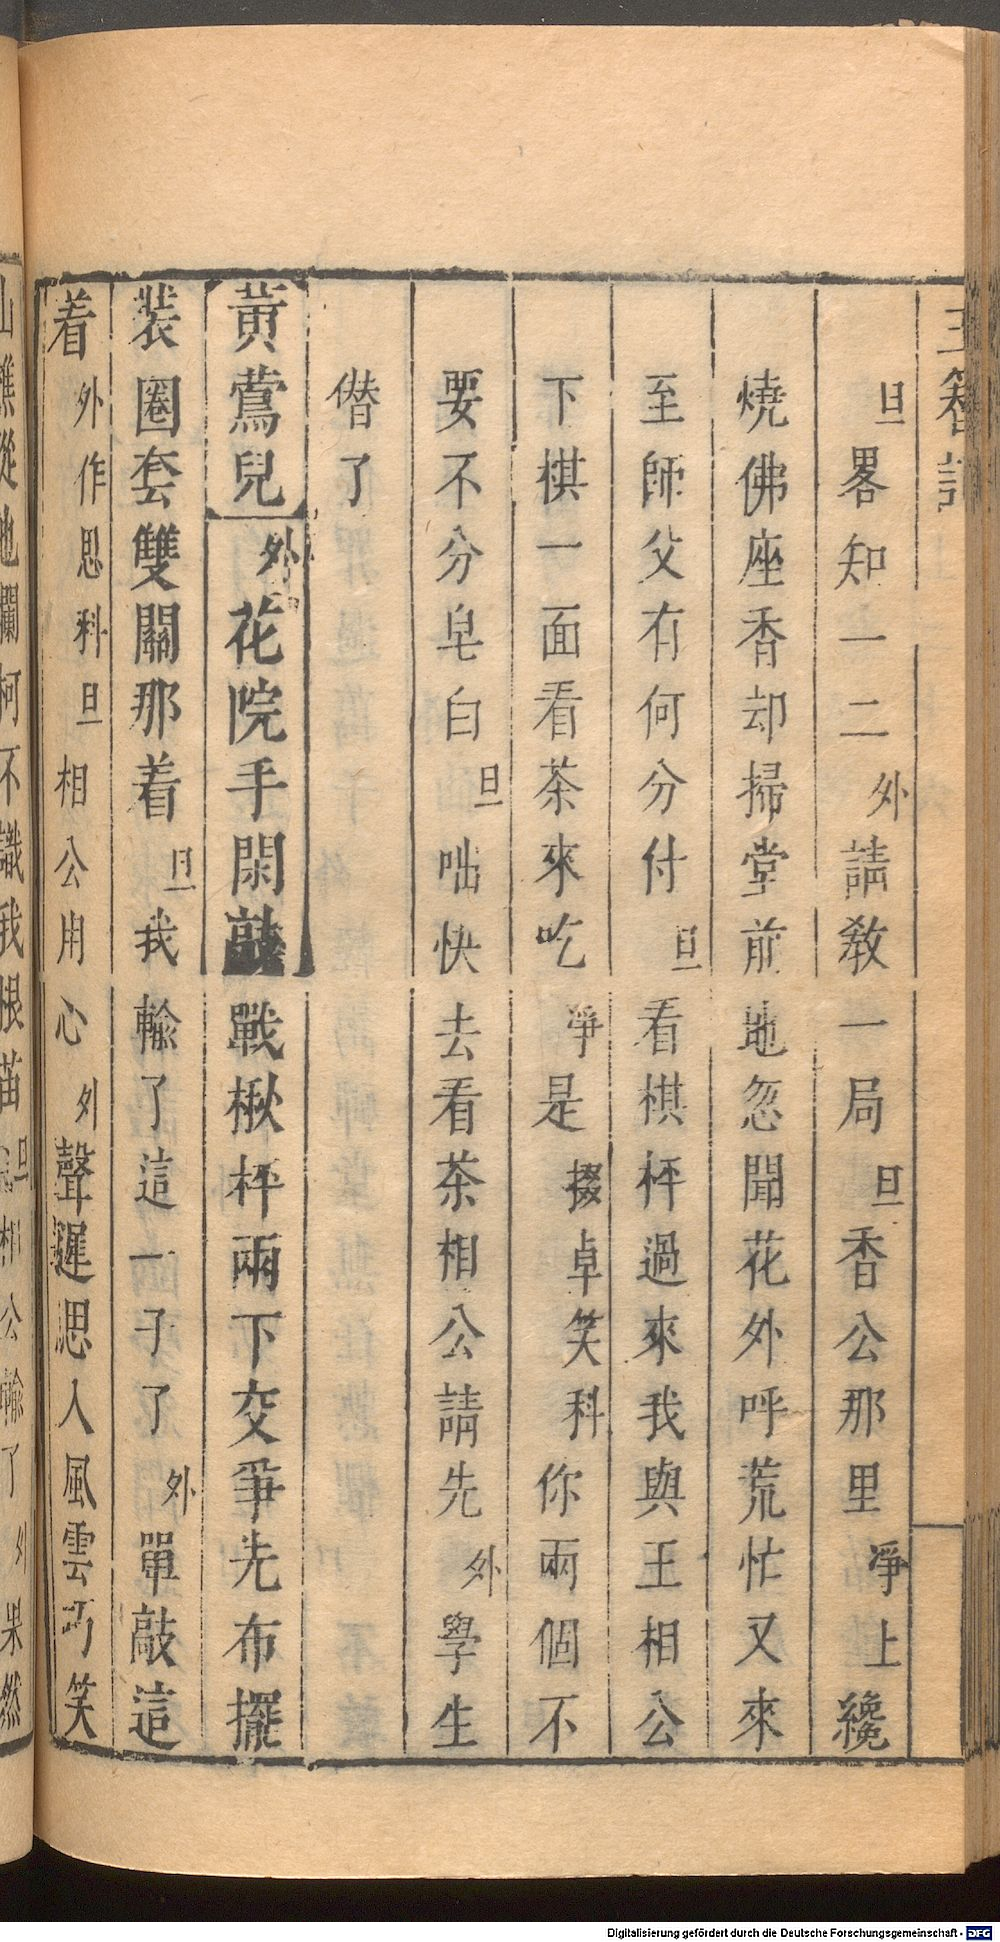 玉簪記
旦畧知一二外請教一局旦香公那里凈上纔
燒佛座香却掃堂前地忽聞花外呼荒忙又來
至師父有何分付旦看棋枰過來我與王相公
下棋一面看茶來吃凈是掇卓笑科你兩個不
要不分皂白旦咄快去看茶相公請先外學生
僭了
黃鶯兒外花院手閑敲戰楸枰兩下交爭先布擺
裝圈套雙關那着旦我輸了這一子了外單敲這
着外作思科旦相公用心外聲遲思人風雲巧笑
山樵從他爛柯不識我根苗旦相公輸了外果然
Digitalisierung gefördert durch die Deutsche Forschungsgemeinschaft - DFG